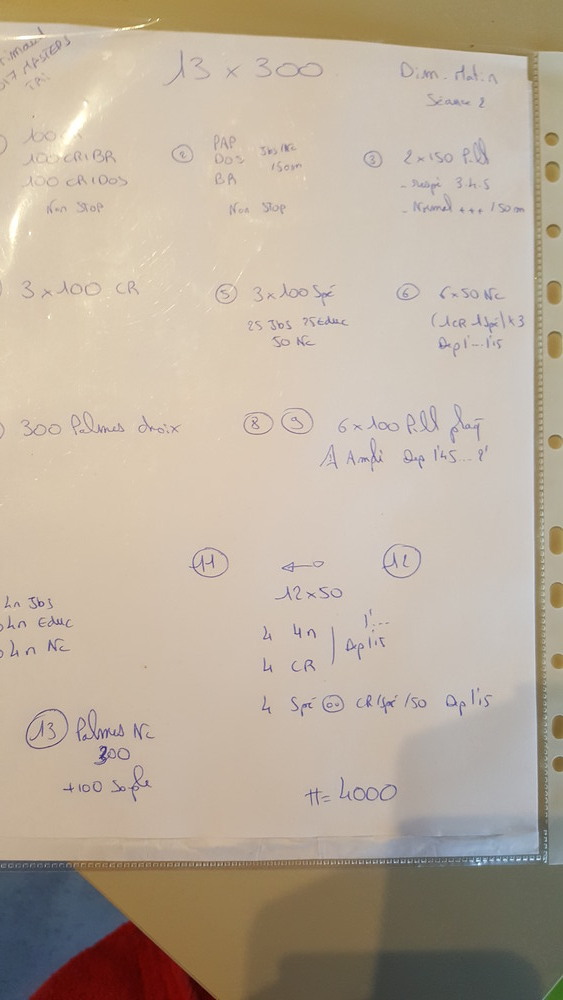 MASTERS
TRI
13 x 300
Dim. Matin
Séance 2
100
100 CR/BR
100 CR/DOS
Non Stop
②
PAP
DOS
BR
Jbs/Nc
150m
Non Stop
③ 2 x 150 Pull
- respi 3.4.5
- Normal +++ /50m
3 x 100 CR
⑤ 3 x 100 Spé
25 Jbs 25 Educ
50 Nc
⑥ 6 x 50 Nc
(1 CR 1 Spé) x 3
Dep 1'...1'15
300 Palmes choix
⑧ ⑨ 6 x 100 Pull plaq
Ampli Dep 1'45... 2'
4n Jbs
4n Educ
4n Nc
⑪ ⑫
12 x 50
4 4n
4 CR
1'...
Dep 1'15
4 Spé ou CR/Spé /50 Dep 1'15
⑬ Palmes Nc
300
+100 Souple
π= 4000